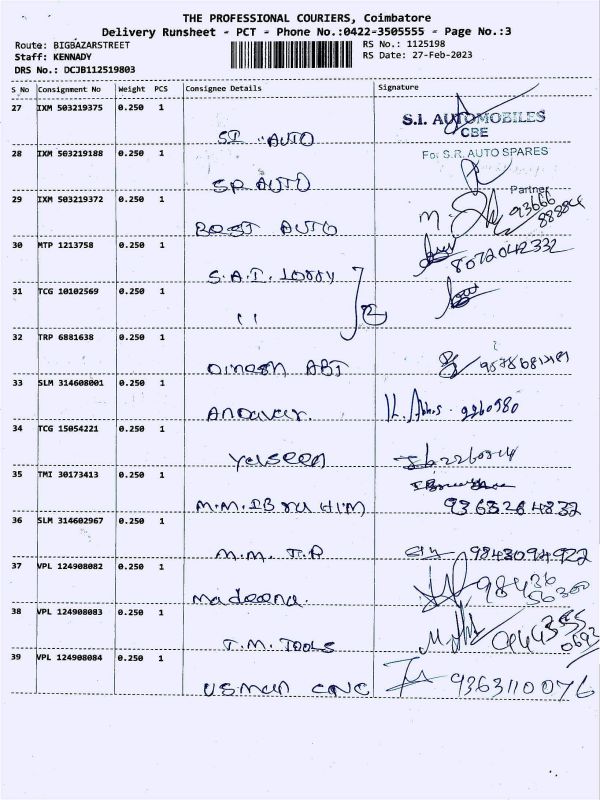 THE PROFESSIONAL COURIERS, Coimbatore
Delivery Runsheet - PCT - Phone No.:0422-3505555 - Page No.:3
Route: BIGBAZARSTREET RS No.: 1125198
Staff: KENNADY RS Date: 27-Feb-2023
DRS No.: DCJB112519803
S No Consignment No Weight PCS Consignee Details Signature
27 IXM 503219375 0.250 1 SI AUTO S.I. AUTOMOBILES
CBE
28 IXM 503219188 0.250 1 SR AUTO For S.R. AUTO SPARES
Partner
29 IXM 503219372 0.250 1 BEST AUTO 93666
88884
30 MTP 1213758 0.250 1 S.A.I. LORRY 8072042332
31 TCG 10102569 0.250 1 "
32 TRP 6881638 0.250 1 DINESH ABI
33 SLM 314608001 0.250 1 Andavar. 2260980
34 TCG 15054221 0.250 1 Yaseen
35 TMI 30173413 0.250 1 M.M.IBRUHIM 9363284832
36 SLM 314602967 0.250 1 M.M. T.R 9843094922
37 VPL 124908082 0.250 1 Madeena. 98436
56300
38 VPL 124908083 0.250 1 T.M. TOOLS
39 VPL 124908084 0.250 1 USMAN CNC 9363110076